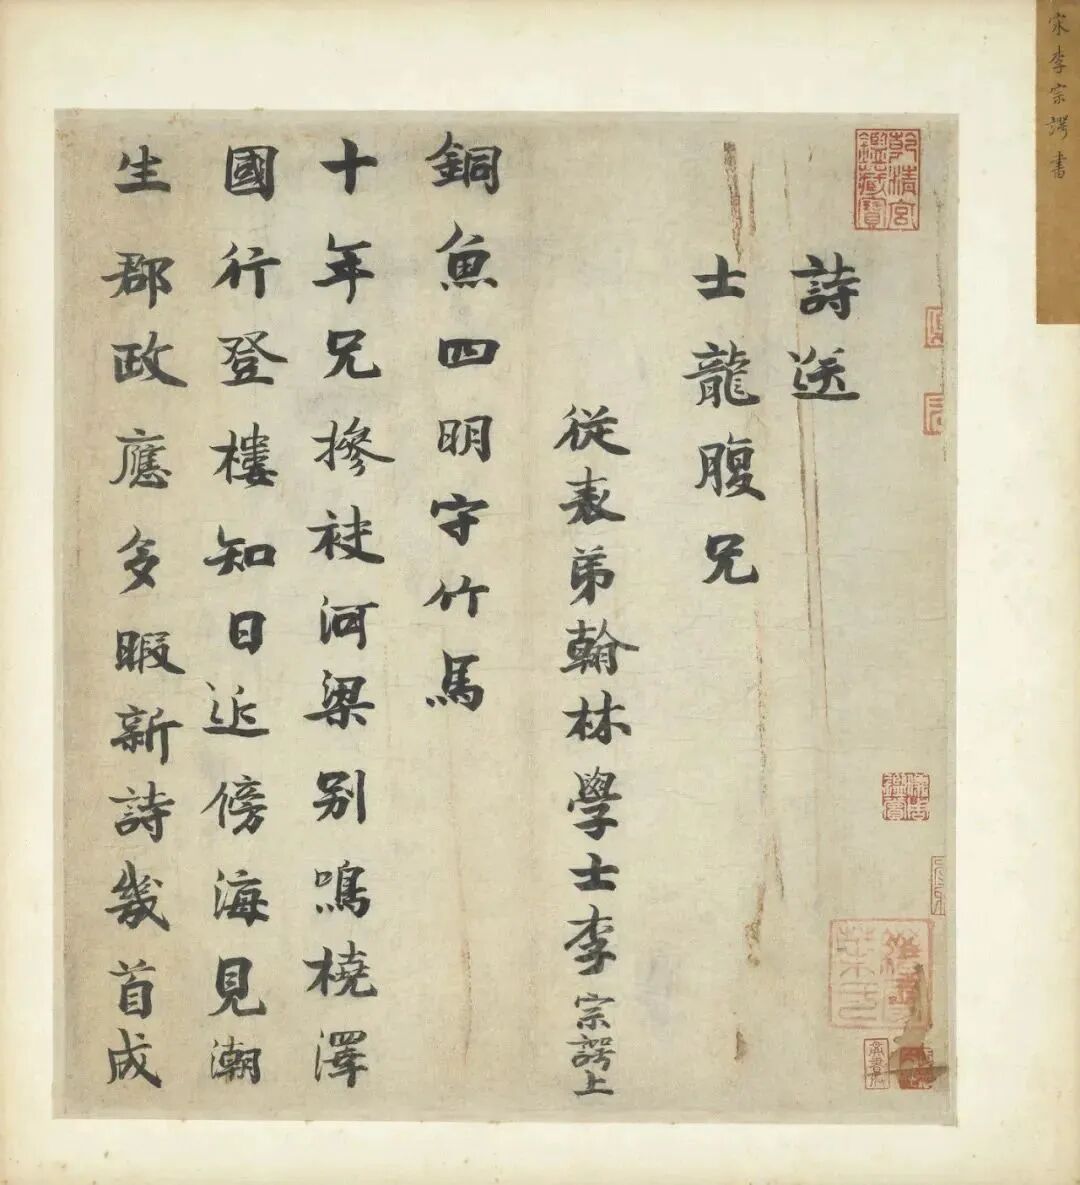 宋李宗諤書
詩送
士龍腹兄
從表弟翰林學士李宗諤上
銅魚四明守竹馬
十年兄摻袂河梁別鳴橈澤
國行登樓知日近傍海見潮
生郡政應多暇新詩幾首成
乾清宮鑑藏寶